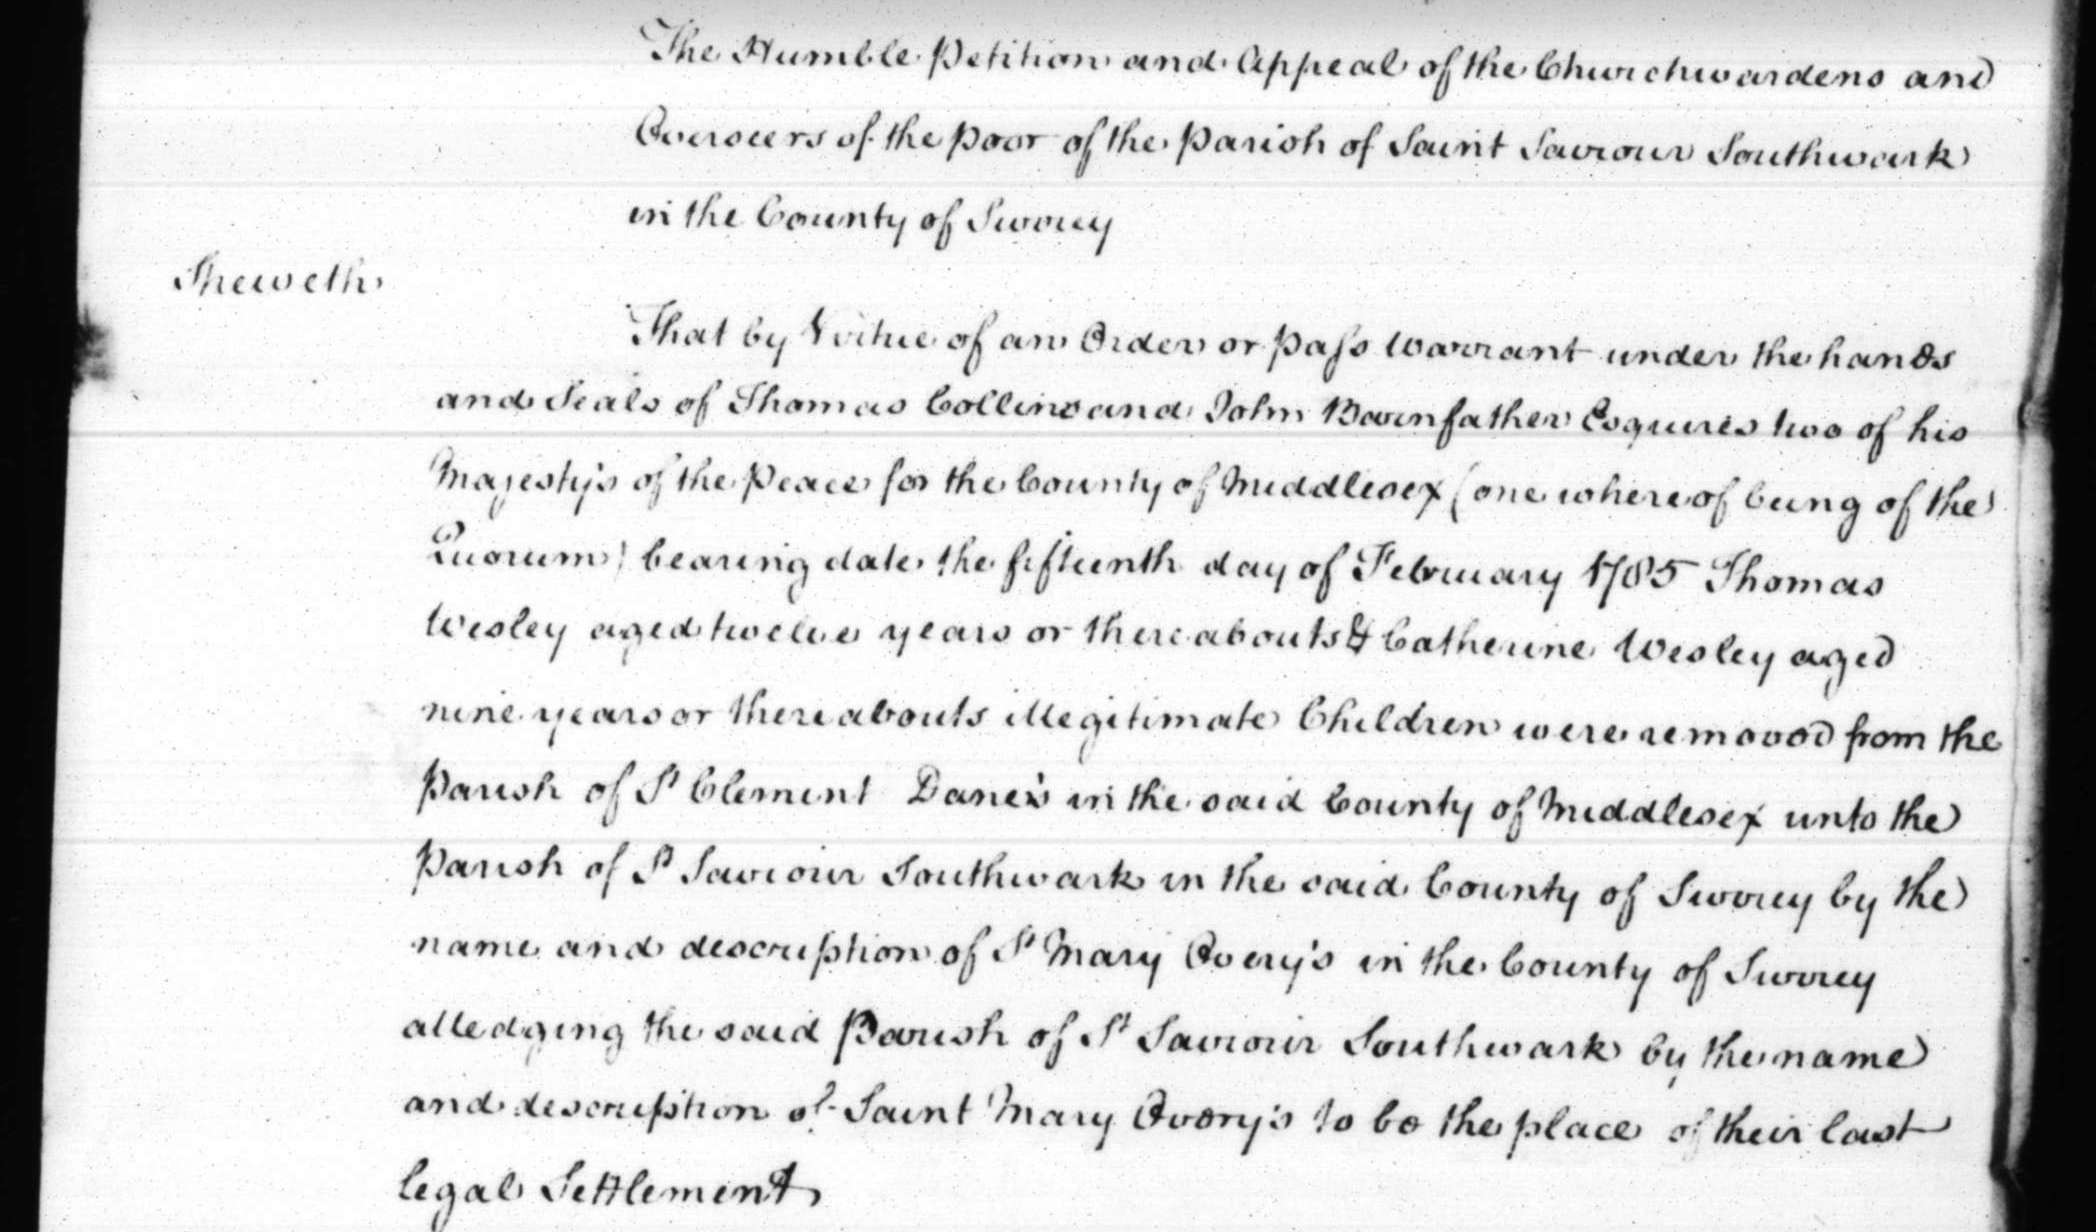 The Humble Petition and Appeal of the Churchwardens and
Overseers of the Poor of the Parish of Saint Saviour Southwark
in the County of Surrey
Sheweth
That by Virtue of an Order or Pass Warrant under the hands
and Seals of Thomas Collins and John Barnfather Esquires two of his
Majesty's of the Peace for the County of Middlesex (one whereof being of the
Quorum) bearing date the fifteenth day of February 1785 Thomas
Wesley aged twelve years or thereabouts & Catherine Wesley aged
nine years or thereabouts illegitimate Children were removed from the
Parish of St Clement Dane's in the said County of Middlesex unto the
Parish of St Saviour Southwark in the said County of Surrey by the
name and description of St Mary Overy's in the County of Surrey
alledging the said Parish of St Saviour Southwark by the name
and description of Saint Mary Overy's to be the place of their last
legal Settlement